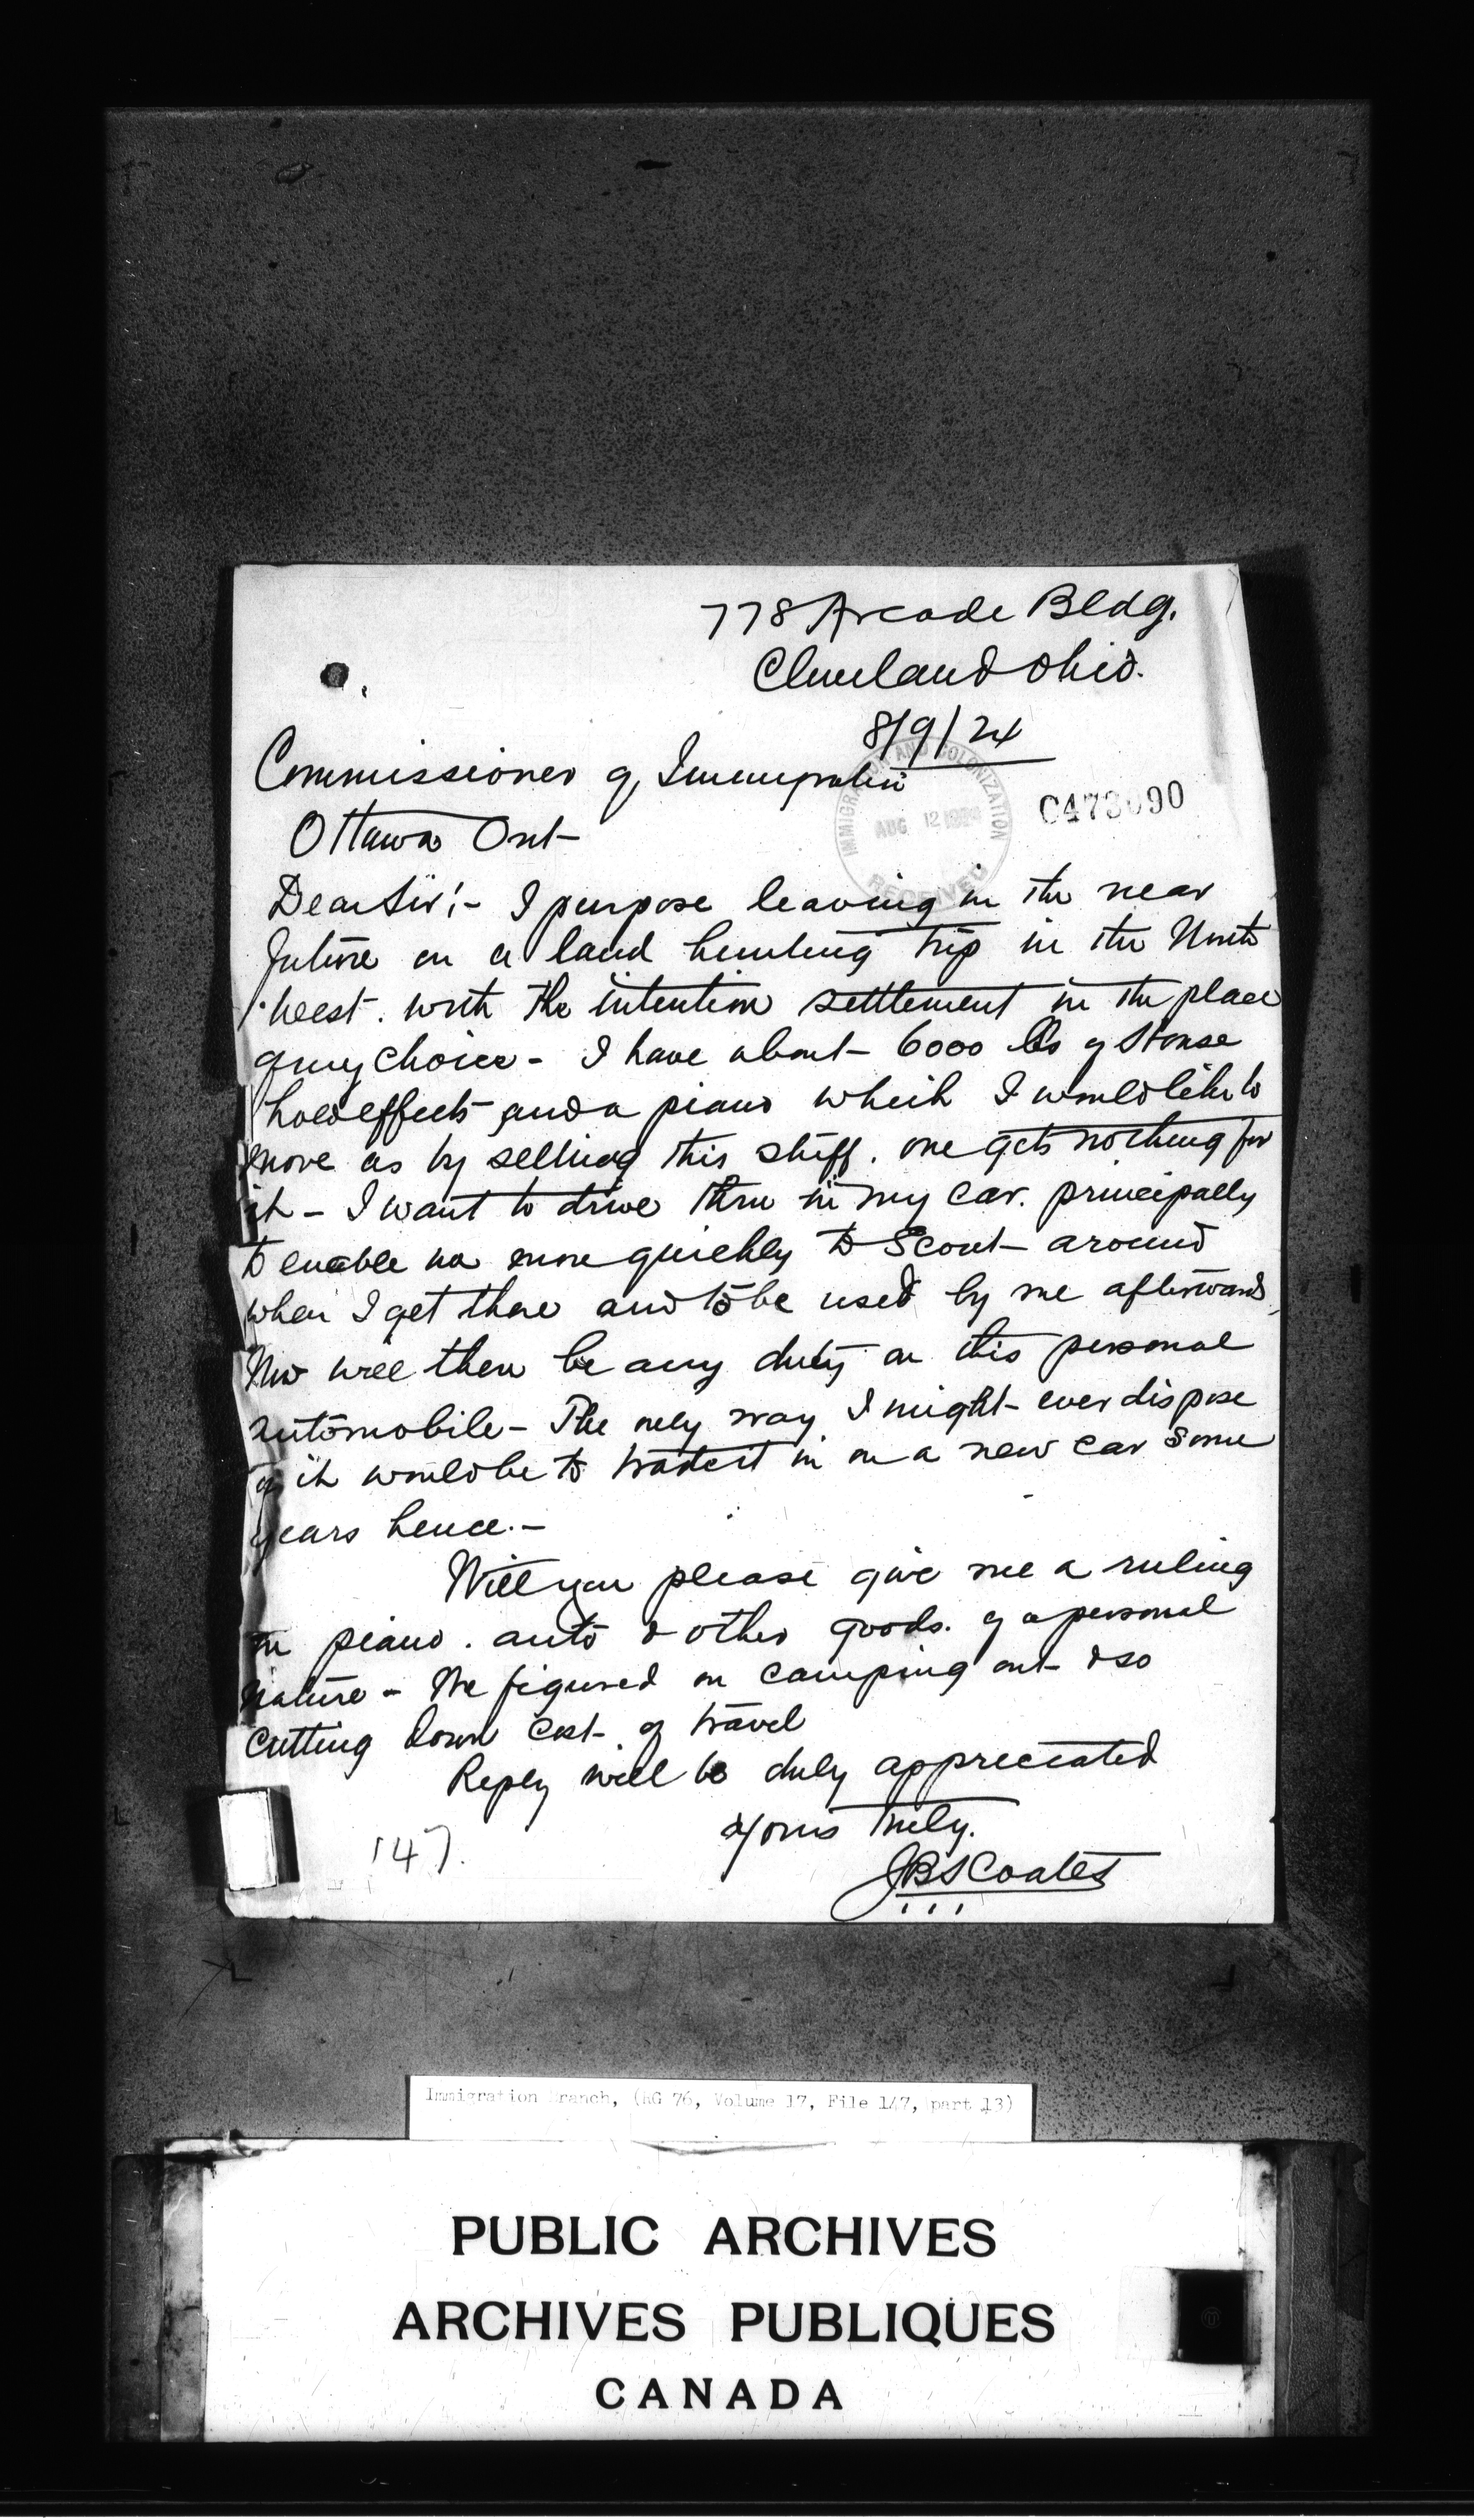 778 Arcade Bldg.
Cleveland Ohio.
8/9/24
Commissioner of Immigration
IMMIGRATION AND COLONIZATION
AUG 12 192
RECEIVED
Ottawa Ont
Dear Sir:- I purpose leaving in the near
future on a land hunting trip in the North
West. with the intention settlement in the place
of my choice - I have about 6000 lbs of House
hold effects and a piano which I would like to
move as by selling this stuff. one gets nothing for
it - I want to drive thru in my car. principally
to enable me more quickly to Scout around
when I get there and to be used by me afterwards
Now will there be any duty on this personal
automobile - The only way I might ever dispose
of it would be to trade it in on a new car some
years hence. -
Will you please give me a ruling
on piano. auto & other goods. of a personal
nature - We figured on camping out & so
cutting down cost of travel
Reply will be duly appreciated
Yours truly.
JBSCoates
147.
Immigration Branch, (RG 76, Volume 17, File 147, part 13)
PUBLIC ARCHIVES
ARCHIVES PUBLIQUES
CANADA